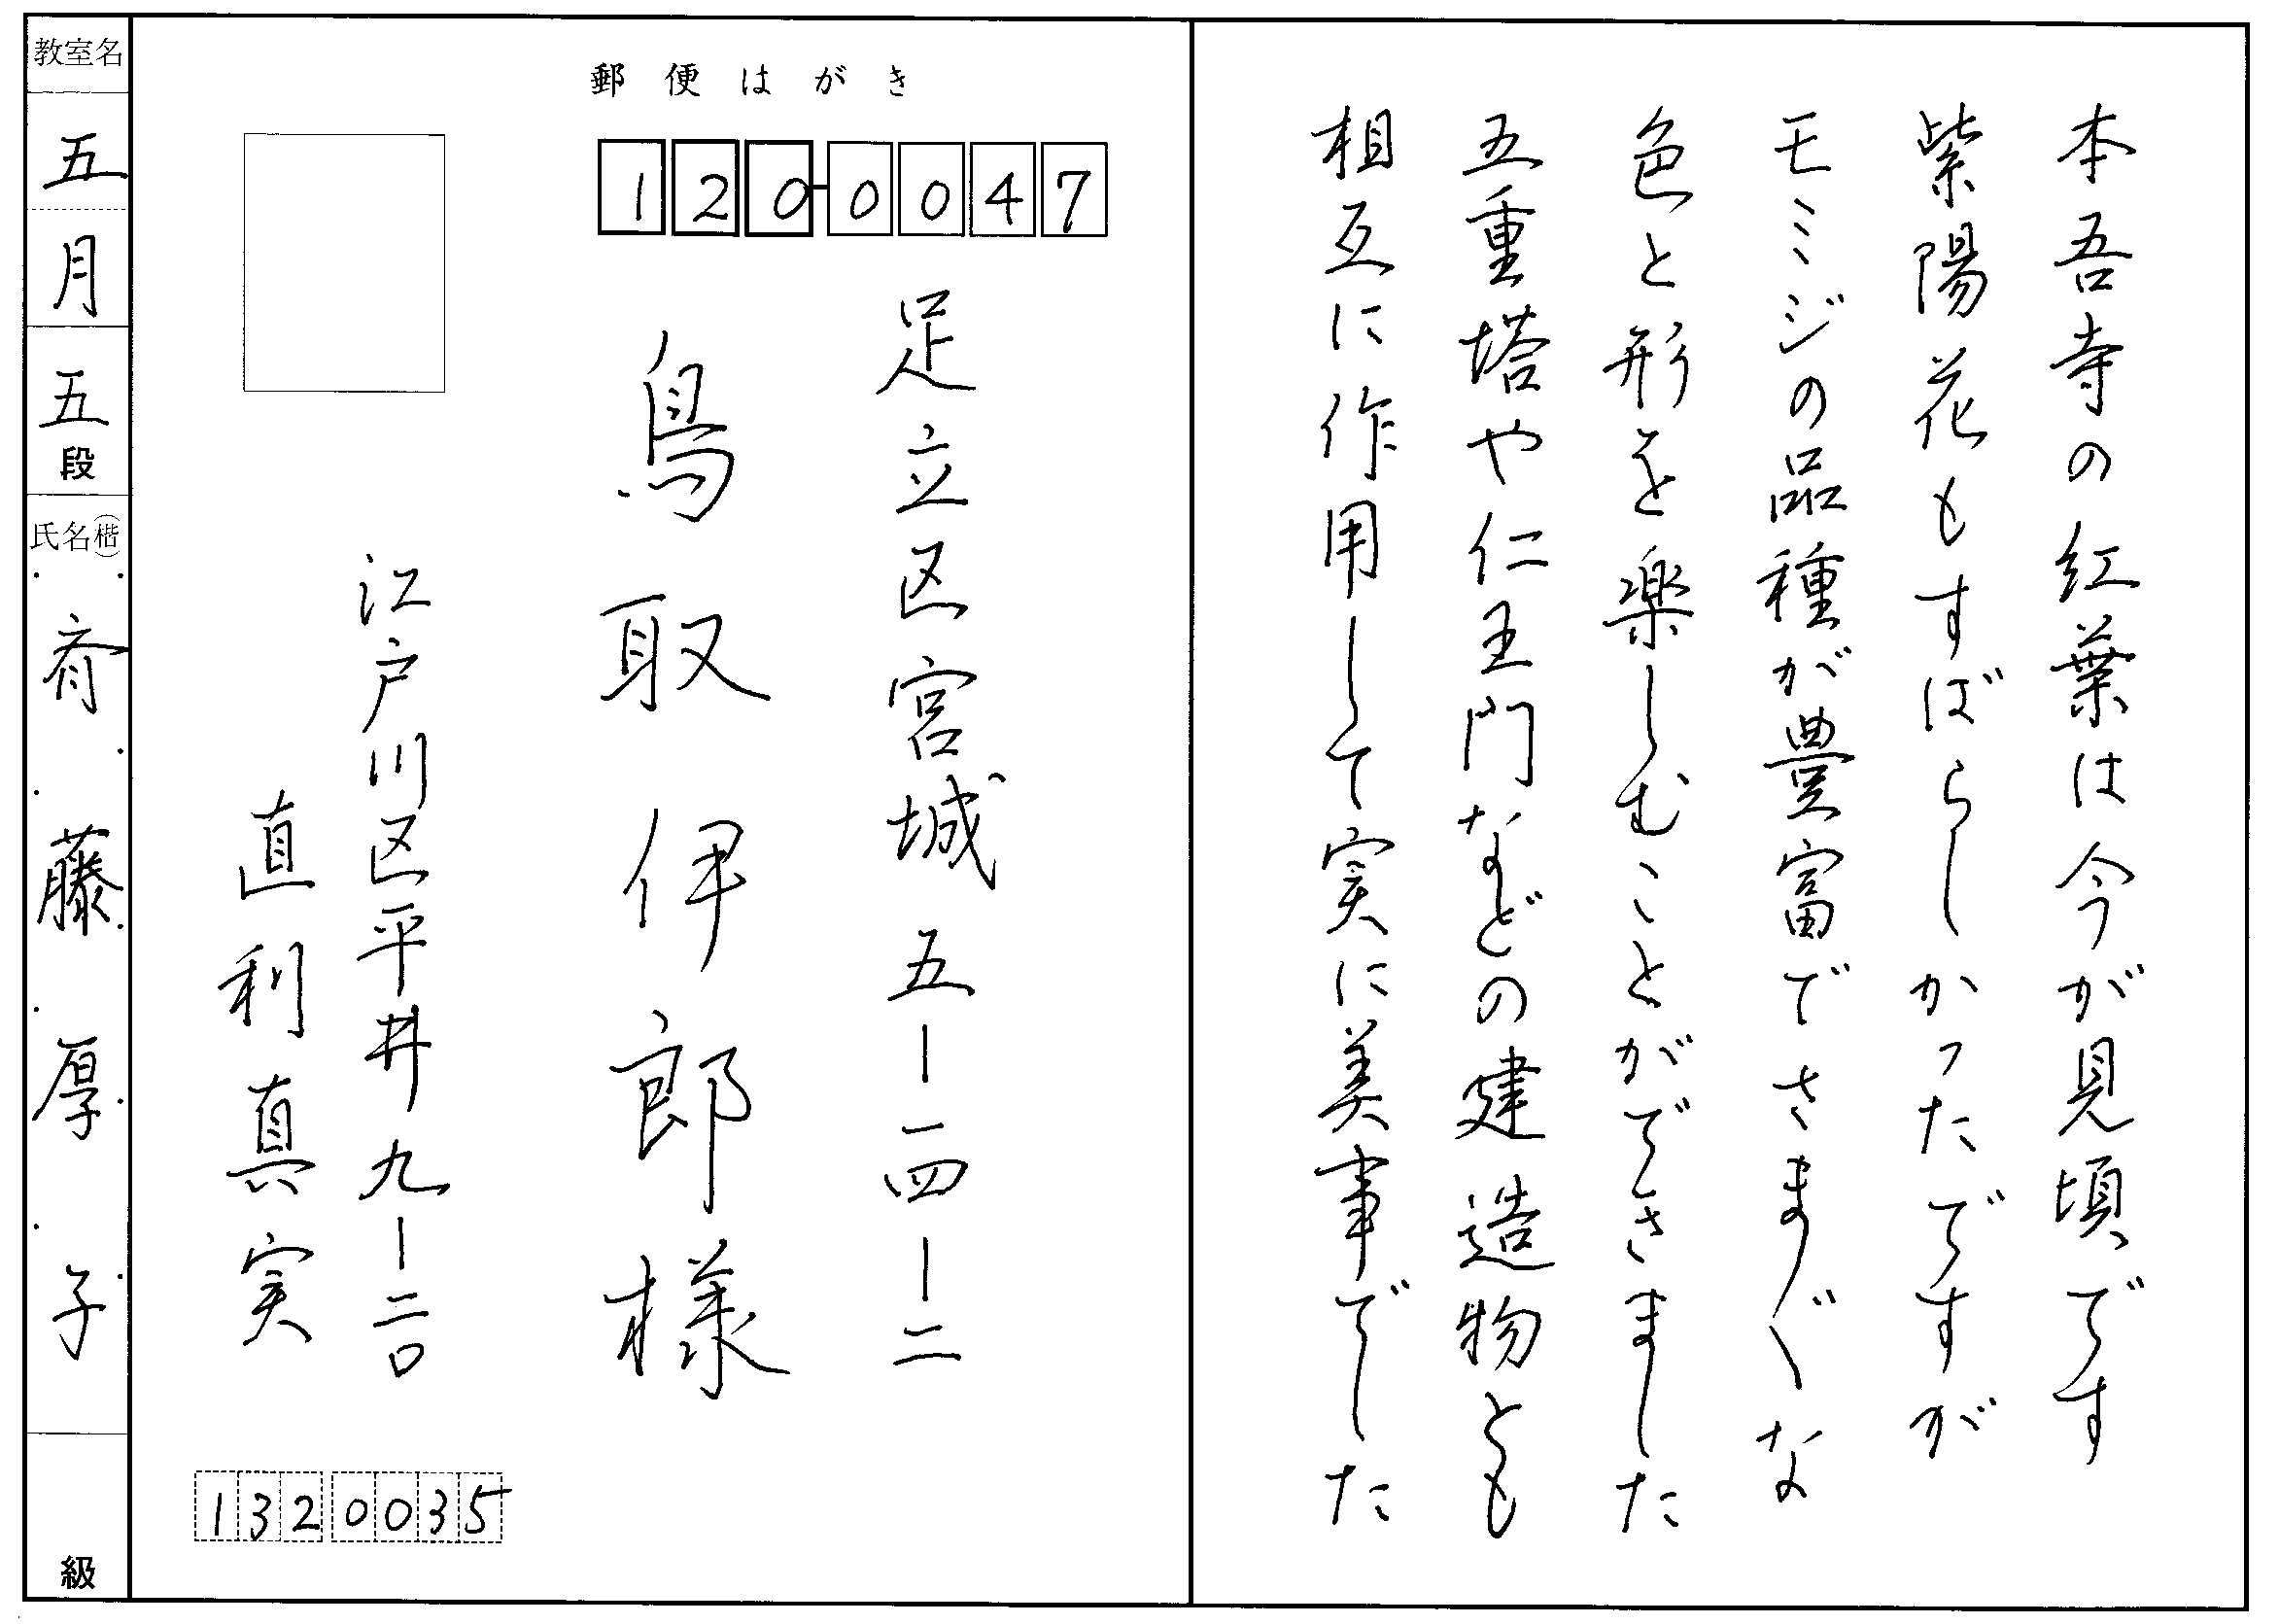 本吾寺の紅葉は今が見頃です
紫陽花もすばらしかったですが
モミジの品種が豊富でさまざまな
色と形を楽しむことができました
五重塔や仁王門などの建造物とも
相互に作用して実に美事でした
郵便はがき
120-0047
足立区宮城五ー一四ー二
鳥取伊郎様
江戸川区平井九ー二〇
直利真実
1320035
教室名
五月
五段
氏名(楷)
斉藤厚子
級